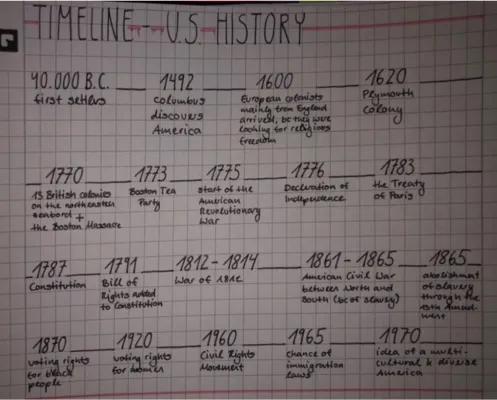 TIMELINE - U.S. HISTORY
40.000 B.C. 1492 1600 1620
first settlers
Columbus
discovers
America
European colonists
mainly from England
arrived, bc they were
looking for religious
freedom
Plymouth
Colony
1770 1773 1775 1776 1783
13 British colonies
on the northeastern
seabord +
the Boston Massacre
Boston Tea
Party
start of the
American
Revolutionary
War
Declaration of
Independence
the Treaty
of Paris
1787 1791 1812-1814 1861-1865 1865
Constitution
Bill of
Rights added
to Constitution
War of 1812
American Civil War
between North and
South (bc of slavery)
abolishment
of slavery
through the
13th Amend-
ment
1870 1920 1960 1965 1970
voting rights
for black
people
voting rights
for women
Civil Rights
Movement
chance of
immigration
laws
idea of a multi-
cultural & diverse
America